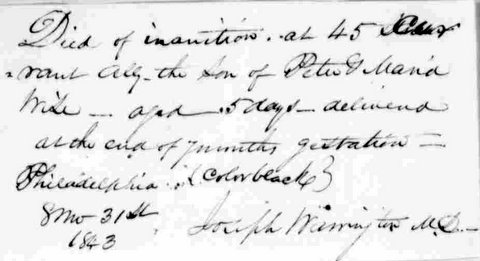 Died of inanition. at 45 Cur
rant Ally - the Son of Peter & Maria
Wise - aged 5 days - deliverd
at the end of 7 months gestation -
Philadelphia. (Color black)
8 Mo 31st
1843 Joseph Warrington M.D. -